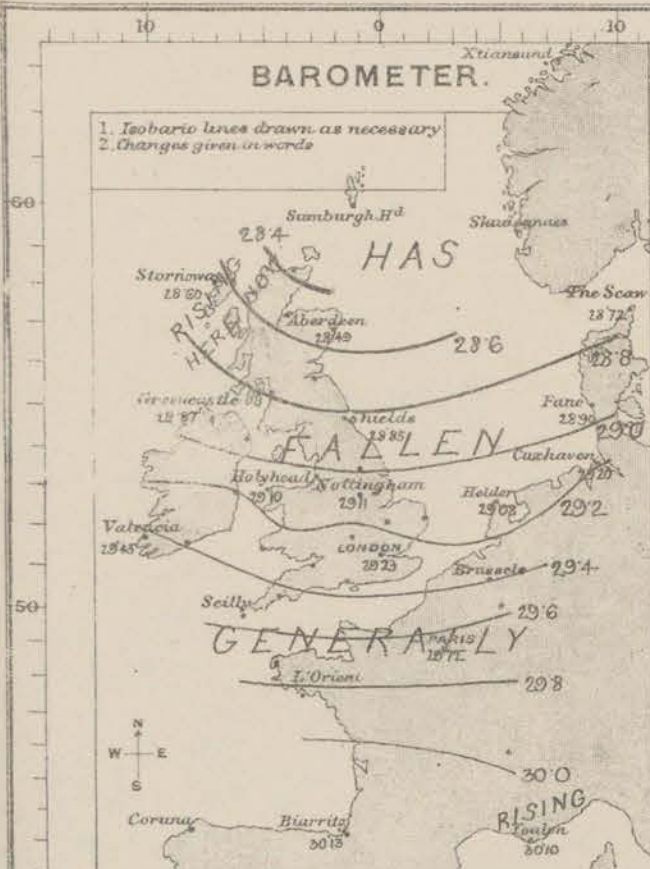 10 0 10
Xtiansund
BAROMETER.
1. Isobaric lines drawn as necessary
2. Changes given in words
60
Sumburgh Hd
28.4
Skudesnaes
HAS
Stornoway
28.60
RISING
HERE NOW
The Scaw
28.72
Aberdeen
28.49
28.6
28.8
Greencastle
28.87
Shields
28.85
Fanö
28.90
29.0
FALLEN
Cuxhaven
29.20
Holyhead
29.10
Nottingham
29.11
Helder
29.08
29.2
Valencia
29.45
LONDON
29.23
Brussels
29.4
50
Scilly
29.6
GENERALLY
PARIS
L'Orient
29.8
N
W E
S
30.0
RISING
Coruna
Biarritz
30.13
Toulon
30.10